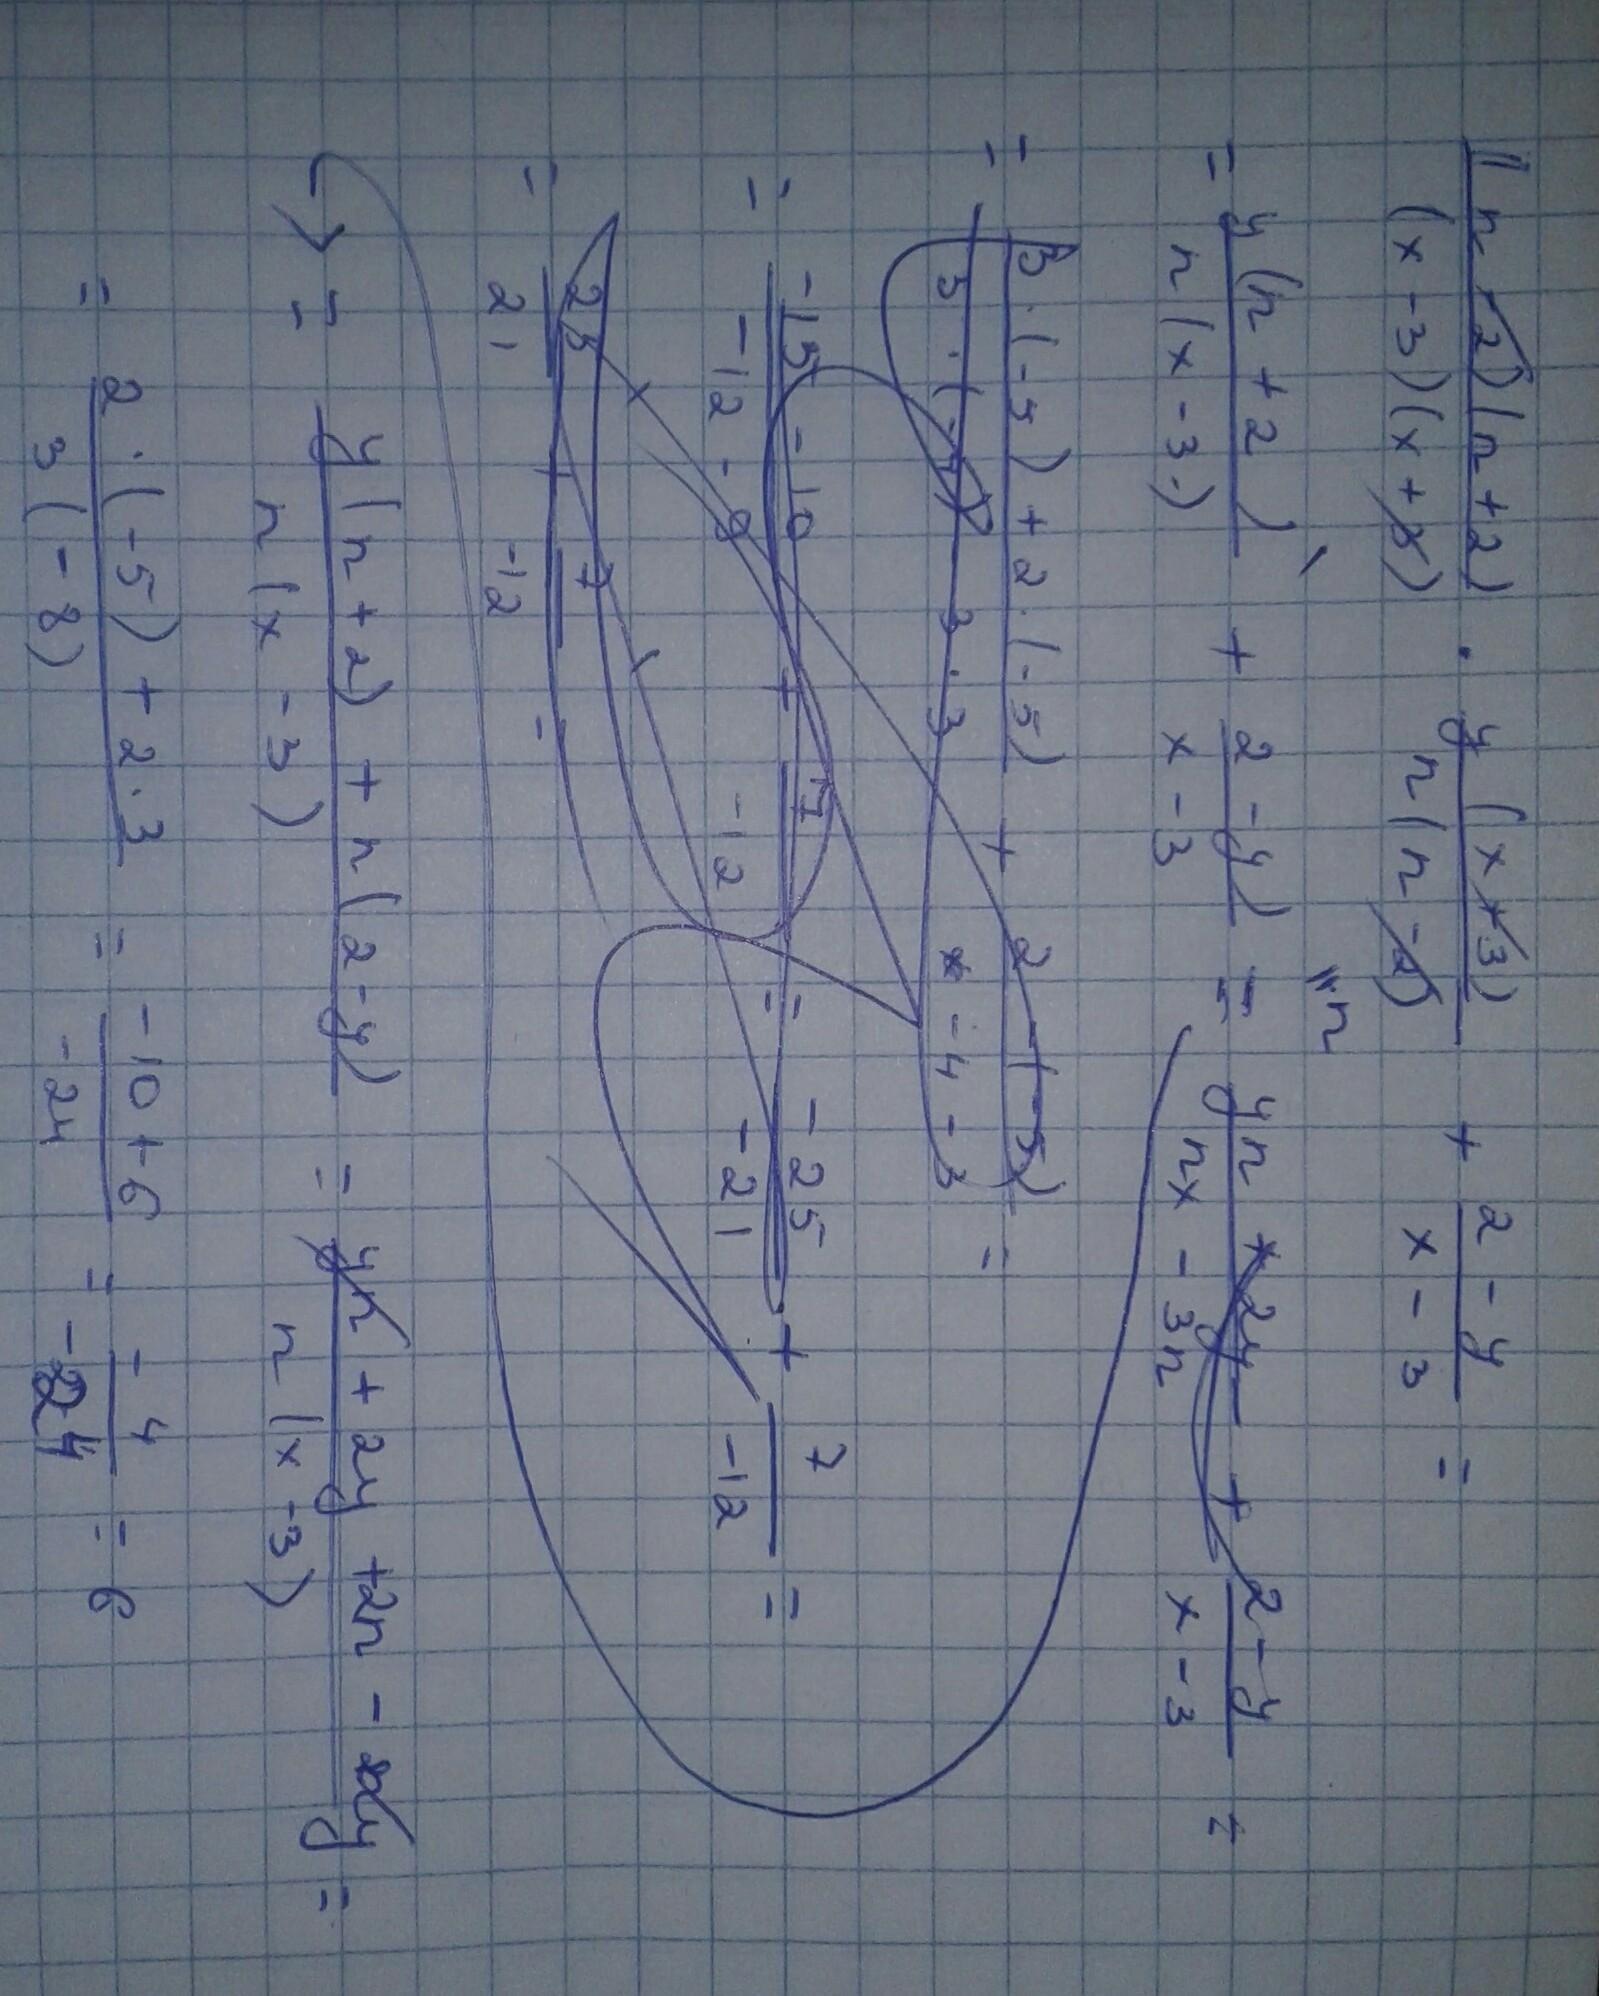 (n-2)(n+2) / (x-3)(x+3) · y(x+3) / n(n-2) + 2-y / x-3 =
= y(n+2) / n(x-3) + 2-y / x-3 = yn + 2y / nx-3n + 2-y / x-3 =
= 3·(-5)+2·(-5) / 3·(-4) 3·3 + 2-(-5) / -4-3 =
= -15-10 / -12-9 + 7 / -12 = -25 / -21 + 7 / -12 =
= 25 / 21 + 7 / -12 =
→ = y(n+2) + n(2-y) / n(x-3) = yn + 2y + 2n - y / n(x-3) =
= 2·(-5) + 2·3 / 3(-8) = -10+6 / -24 = -4 / -24 = 6